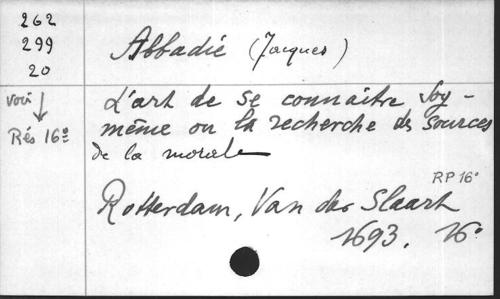 262
299
20
voir
Rés 16º
Abbadie (Jacques)
L'art de se connaitre soy-
même ou la recherche des sources
de la morale
RP 16º
Rotterdam, Van der Slaart
1693. 16º